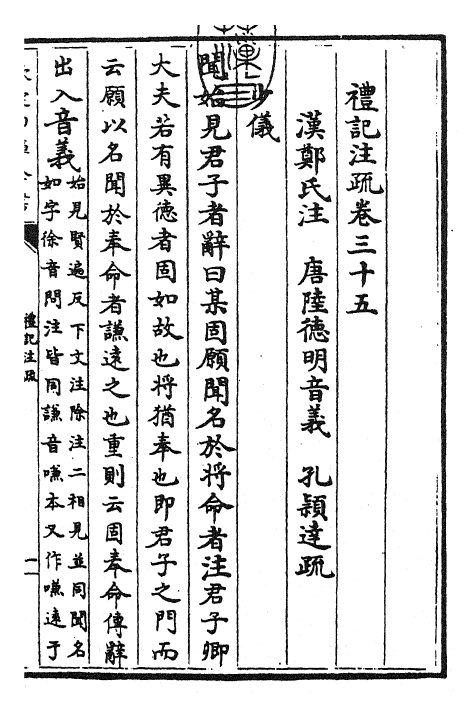 禮記注疏卷三十五
漢鄭氏注 唐陸德明音義 孔穎達疏
少儀
聞始見君子者辭曰某固願聞名於將命者注君子卿
大夫若有異德者固如故也將猶奉也即君子之門而
云願以名聞於奉命者謙遠之也重則云固奉命傳辭
出入音義始見賢遍反下文注除注二相見並同聞名
如字徐音問注皆同謙音嗛本又作嗛遠于
禮記注疏
一